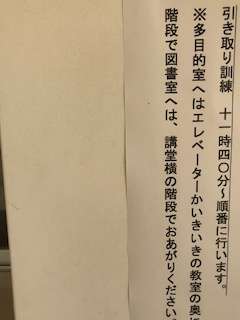 引き取り訓練　十一時四〇分～順番に行います。
※多目的室へはエレベーターかいきいきの教室の奥に
階段で図書室へは、講堂横の階段でおあがりください。